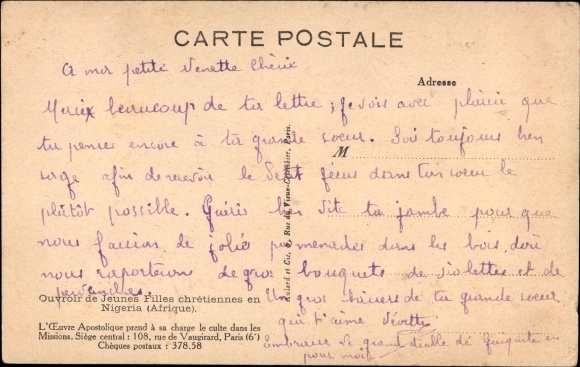 CARTE POSTALE
A ma petite Nenette Chérie
Adresse
Merci beaucoup de ta lettre ; je vois avec plaisir que
tu penses encore à ta grande sœur. Sois toujours bien
M
sage afin de recevoir le Petit Jésus dans ton cœur le
plutôt possible. Guéris bien vite ta jambe pour que
nous fassions de jolies promenades dans les bois, dont
nous raporterons de gros bouquets de violettes et de
pervenches.
Ouvroir de Jeunes Filles chrétiennes en
Nigeria (Afrique).
Un gros baisers de ta grande sœur
L'Œuvre Apostolique prend à sa charge le culte dans les
Missions. Siège central : 108, rue de Vaugirard, Paris (6e)
Chèques postaux : 378.58
qui t'aime
Embrasse le grand diable de
pour moi
et Cie, Rue du Vieux-Colombier, Paris.